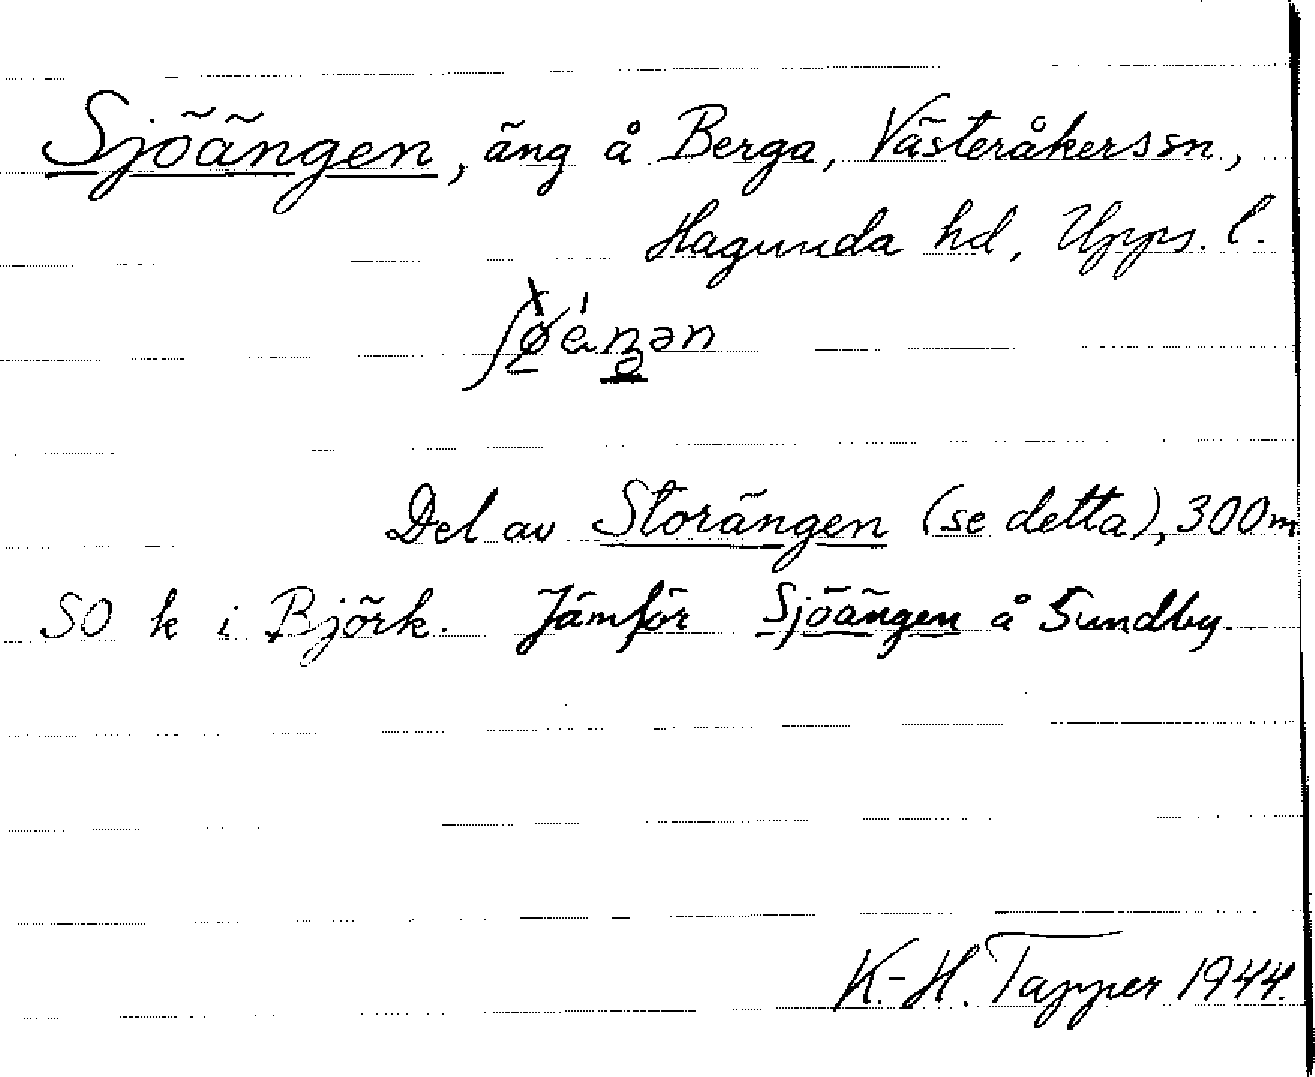 Sjöängen, äng å Berga, Västeråkers sn,
Hagunda hd, Upps. l.
Del av Storängen (se detta), 300 m
SO k i Björk. Jämför Sjöängen å Sundby.
K.-H. Tapper 1944.